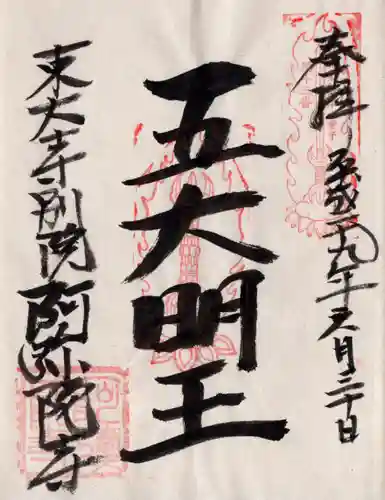 奉拝 平成二十九年三月二十日
五大明王
東大寺別院 阿弥陀寺